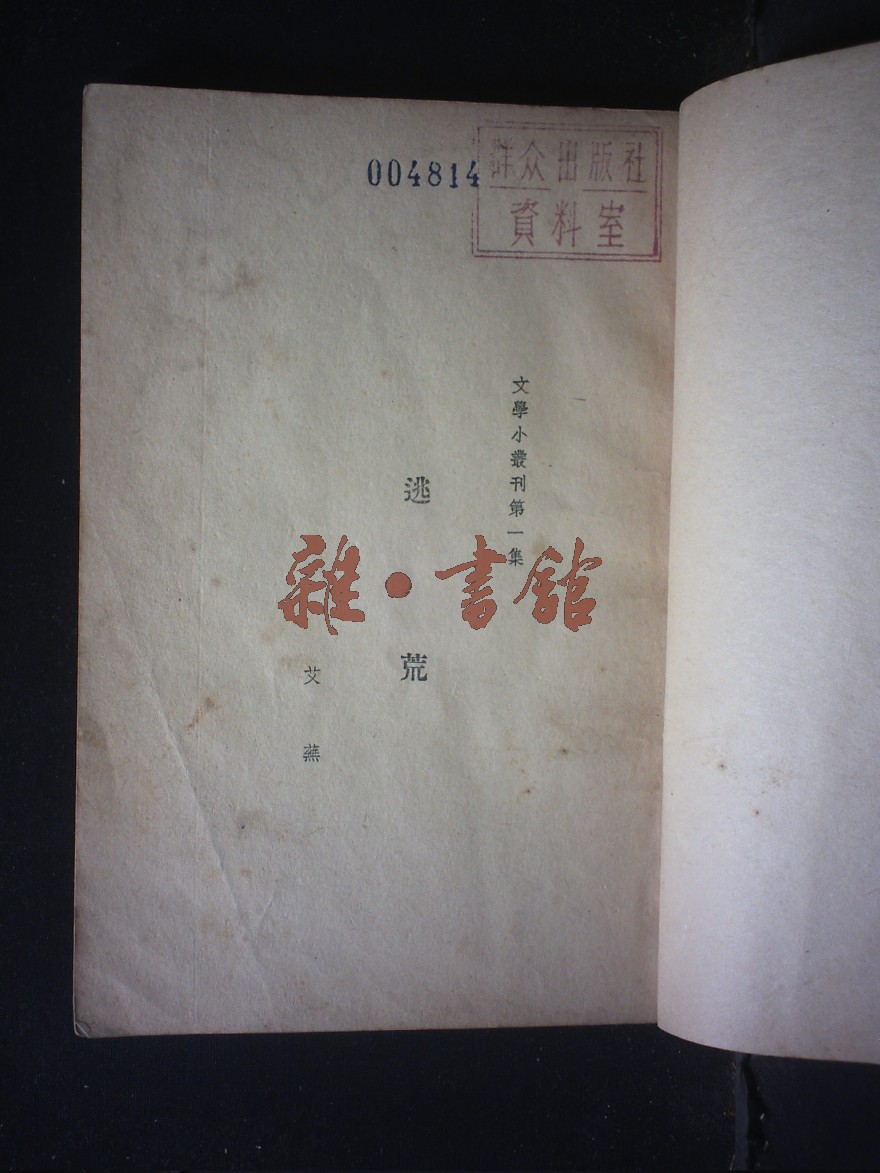 004814
群众出版社
資料室
文學小叢刊第一集
逃荒
艾蕪
雜·書館